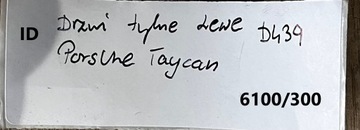 ID Drzwi tylne Lewe D439
Porsche Taycan
6100/300